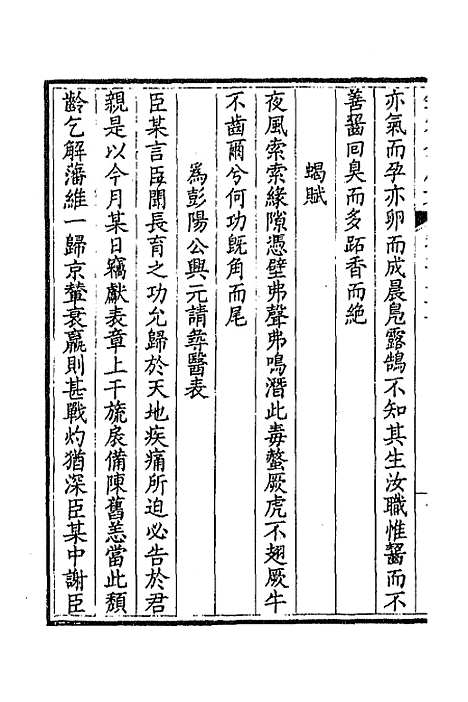 亦氣而孕亦卵而成晨鳧露鵠不知其生汝職惟齧而不
善齧回臭而多跖香而絶
蝎賦
夜風索索緣隙憑壁弗聲弗鳴潛此毒螫厥虎不翅厥牛
不齒爾兮何功既角而尾
為彭陽公興元請尋醫表
臣某言臣聞長育之功允歸於天地疾痛所迫必告於君
親是以今月某日竊獻表章上干旒扆備陳舊恙當此頽
齡乞解藩維一歸京輦衰羸則甚戰灼猶深臣某中謝臣